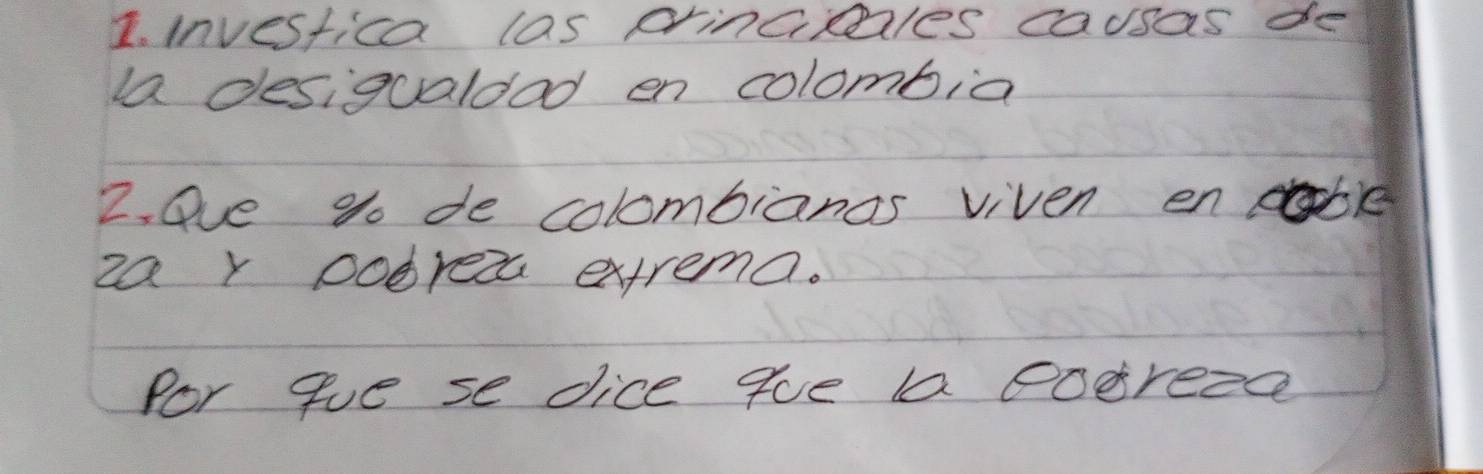 1. investica las principales causas de
la desigualdad en colombia
2. Que % de colombianos viven en pobre
za y pobreza extrema.
Por que se dice que la pobreza